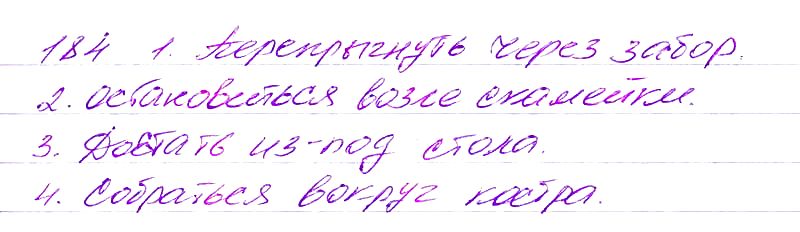 184 1. Перепрыгнуть через забор.
2. Остановиться возле скамейки.
3. Достать из-под стола.
4. Собраться вокруг костра.